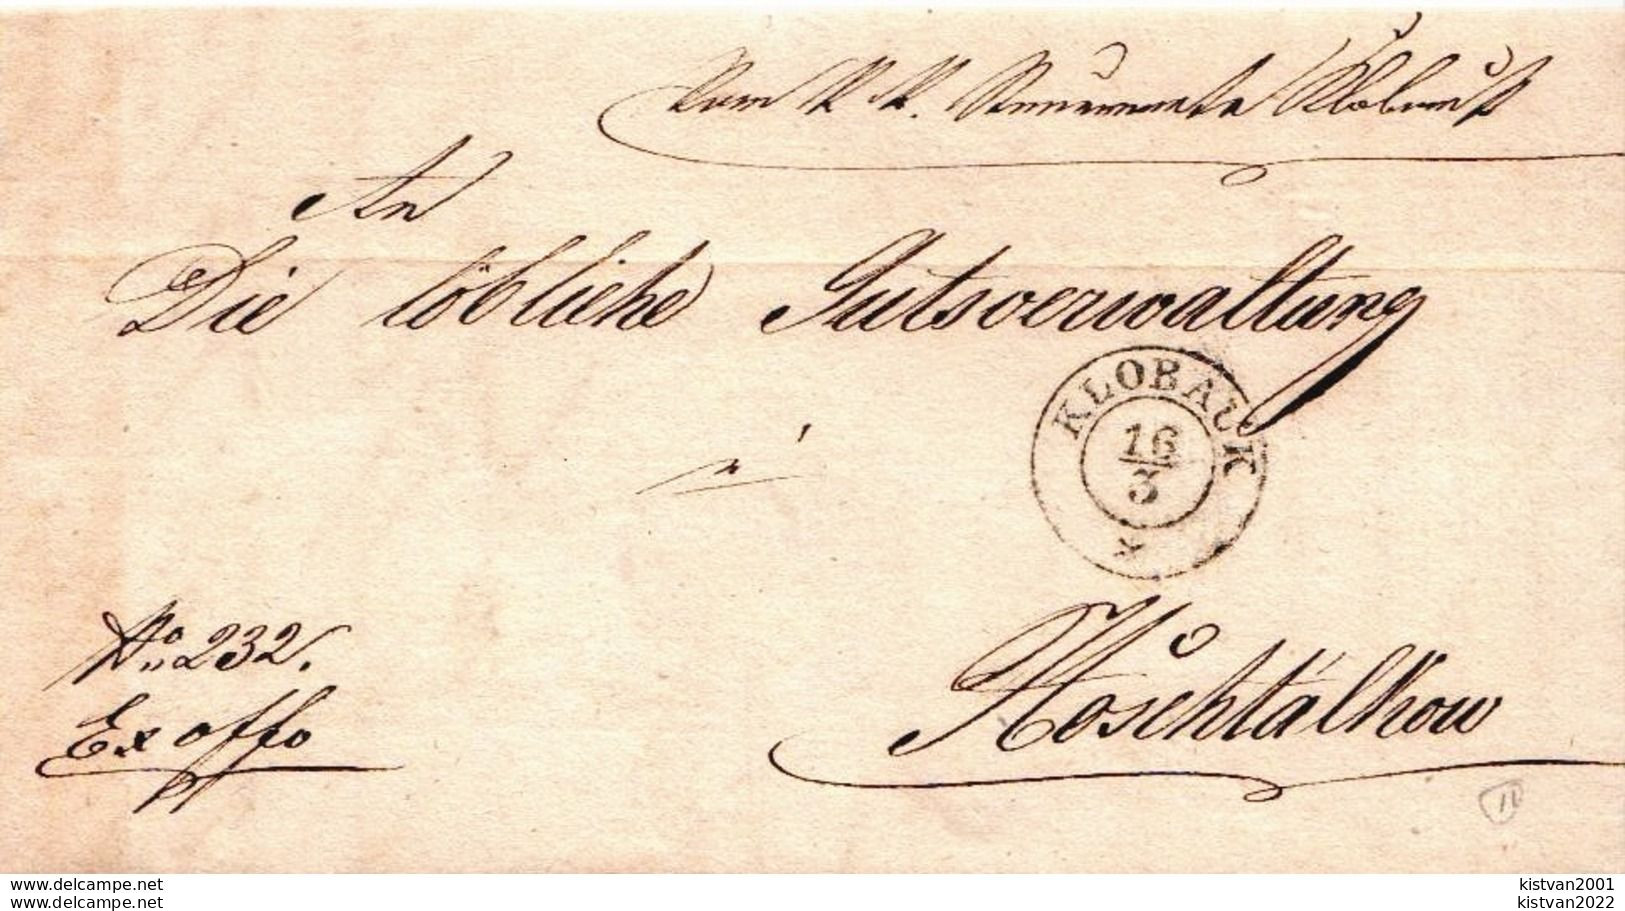 Vom K. K. Steueramte Klobauk
An
Die löbliche Gutsverwaltung
KLOBAUK
16
3
*
à
No 232.
Ex offo
Hoschtálkow
11
www.delcampe.net
www.delcampe.net
kistvan2001
kistvan2022